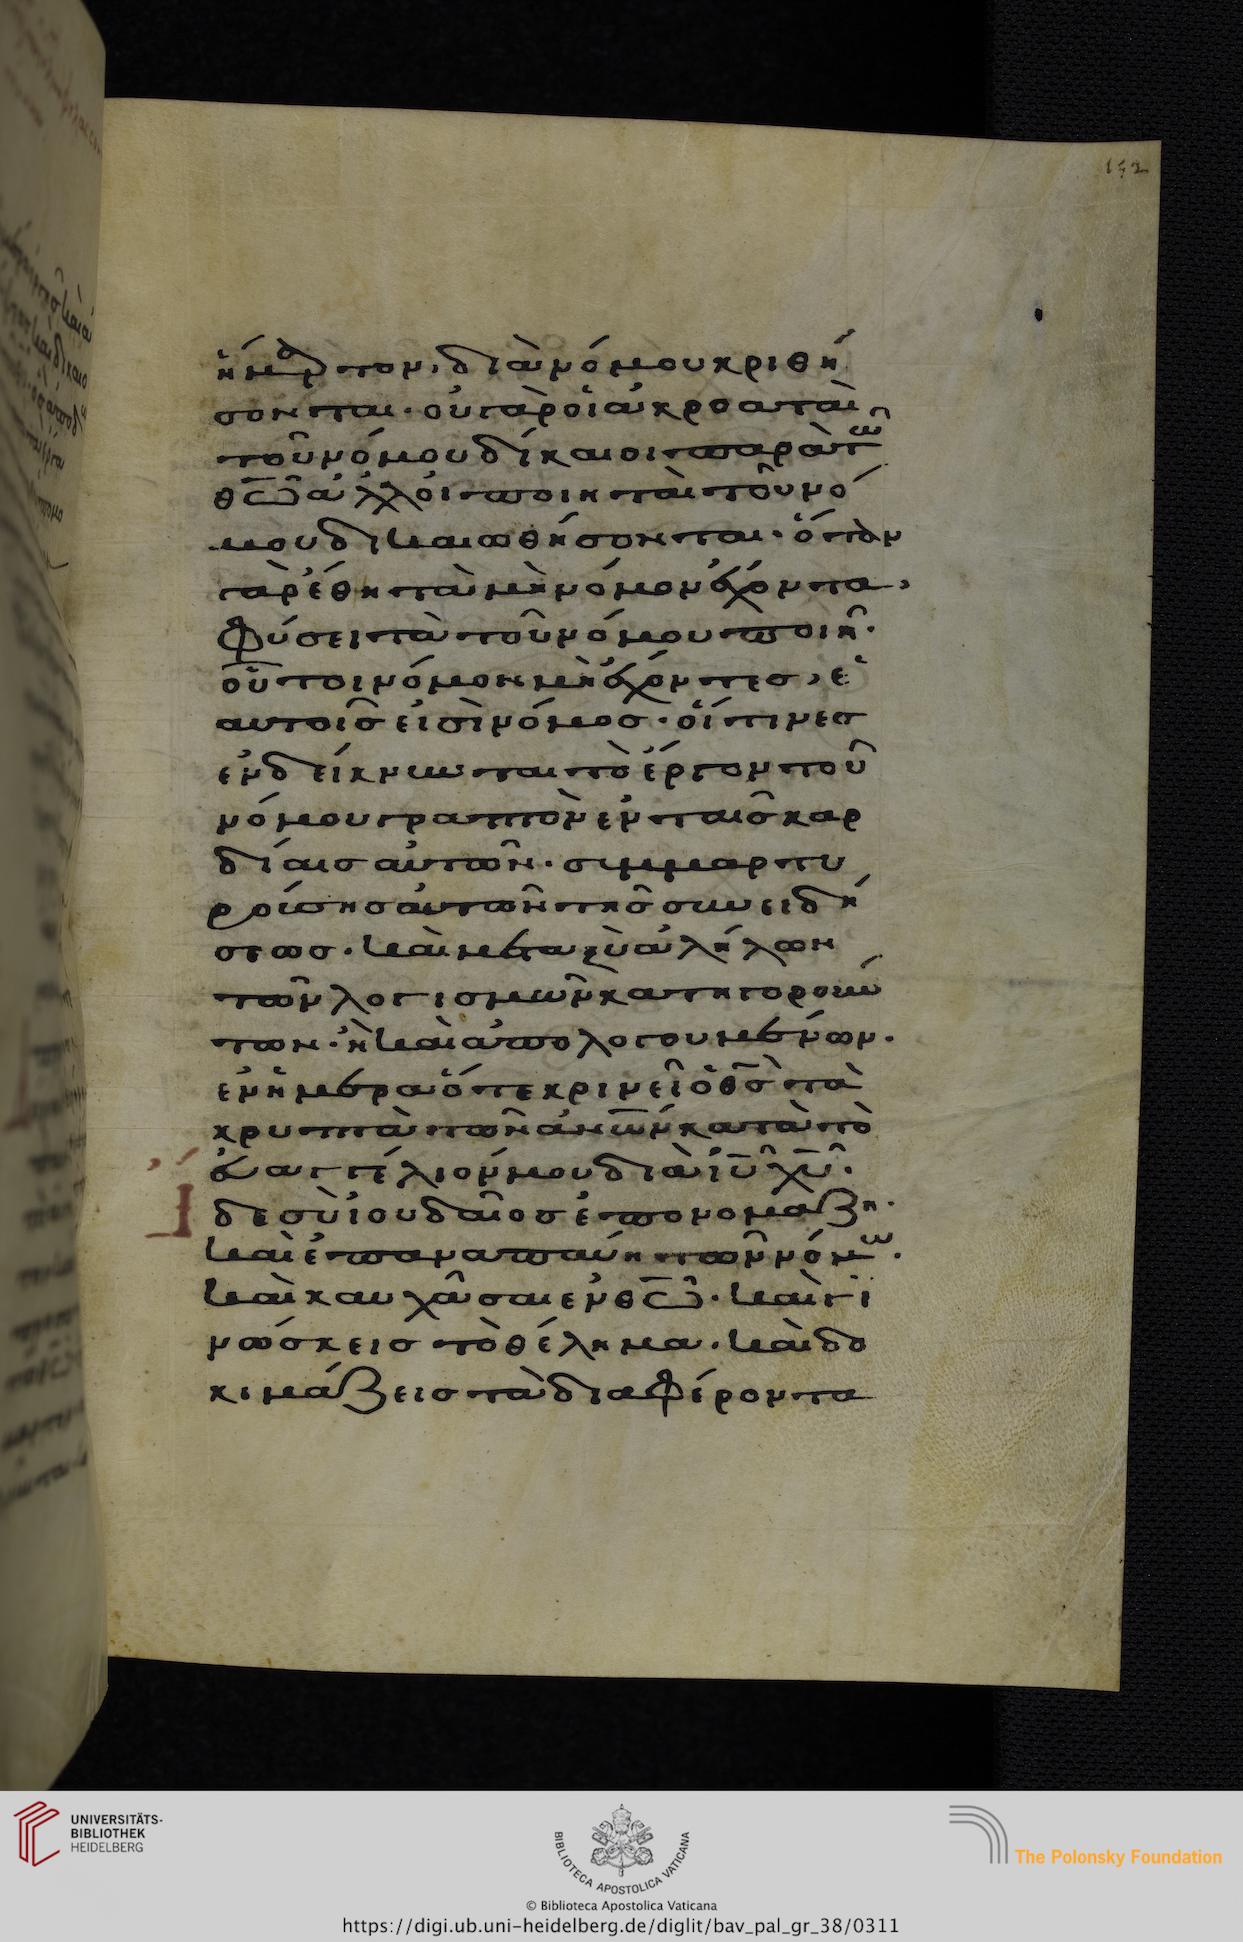 152
ἥμαρτον, διὰ νόμου κριθή
σονται· οὐ γὰρ οἱ ἀκροαταὶ
τοῦ νόμου δίκαιοι παρὰ τῶ
θῶ ἀλλ' οἱ ποιηταὶ τοῦ νό
μου δικαιωθήσονται· ὅταν
γὰρ ἔθνη τὰ μὴ νόμον ἔχοντα,
φύσει τὰ τοῦ νόμου ποιῆ·
οὗτοι νόμον μὴ ἔχοντες, ἑ
αυτοῖς εἰσὶ νόμος· οἵτινες
ἐνδείκνυνται τὸ ἔργον τοῦ
νόμου γραπτὸν ἐν ταῖς καρ
δίαις αὐτῶν· συμμαρτυ
ρούσης αὐτῶν τῆς συνειδή
σεως· καὶ μεταξὺ ἀλλήλων
τῶν λογισμῶν κατηγορούν
των· ἢ καὶ ἀπολογουμένων·
ἐν ἡμέρα ὅτε κρινεῖ ὁ θς τὰ
κρυπτὰ τῶν ἀνων κατὰ τὸ
εὐαγγέλιόν μου διὰ ιυ χυ·
Ἴδε σὺ ἰουδαῖος ἐπονομάζη·
καὶ ἐπαναπαύη τῶ νόμω·
καὶ καυχᾶσαι ἐν θῶ· καὶ γι
νώσκεις τὸ θέλημα· καὶ δο
κιμάζεις τὰ διαφέροντα
UNIVERSITÄTS-
BIBLIOTHEK
HEIDELBERG
BIBLIOTECA APOSTOLICA VATICANA
The Polonsky Foundation
© Biblioteca Apostolica Vaticana
https://digi.ub.uni-heidelberg.de/diglit/bav_pal_gr_38/0311